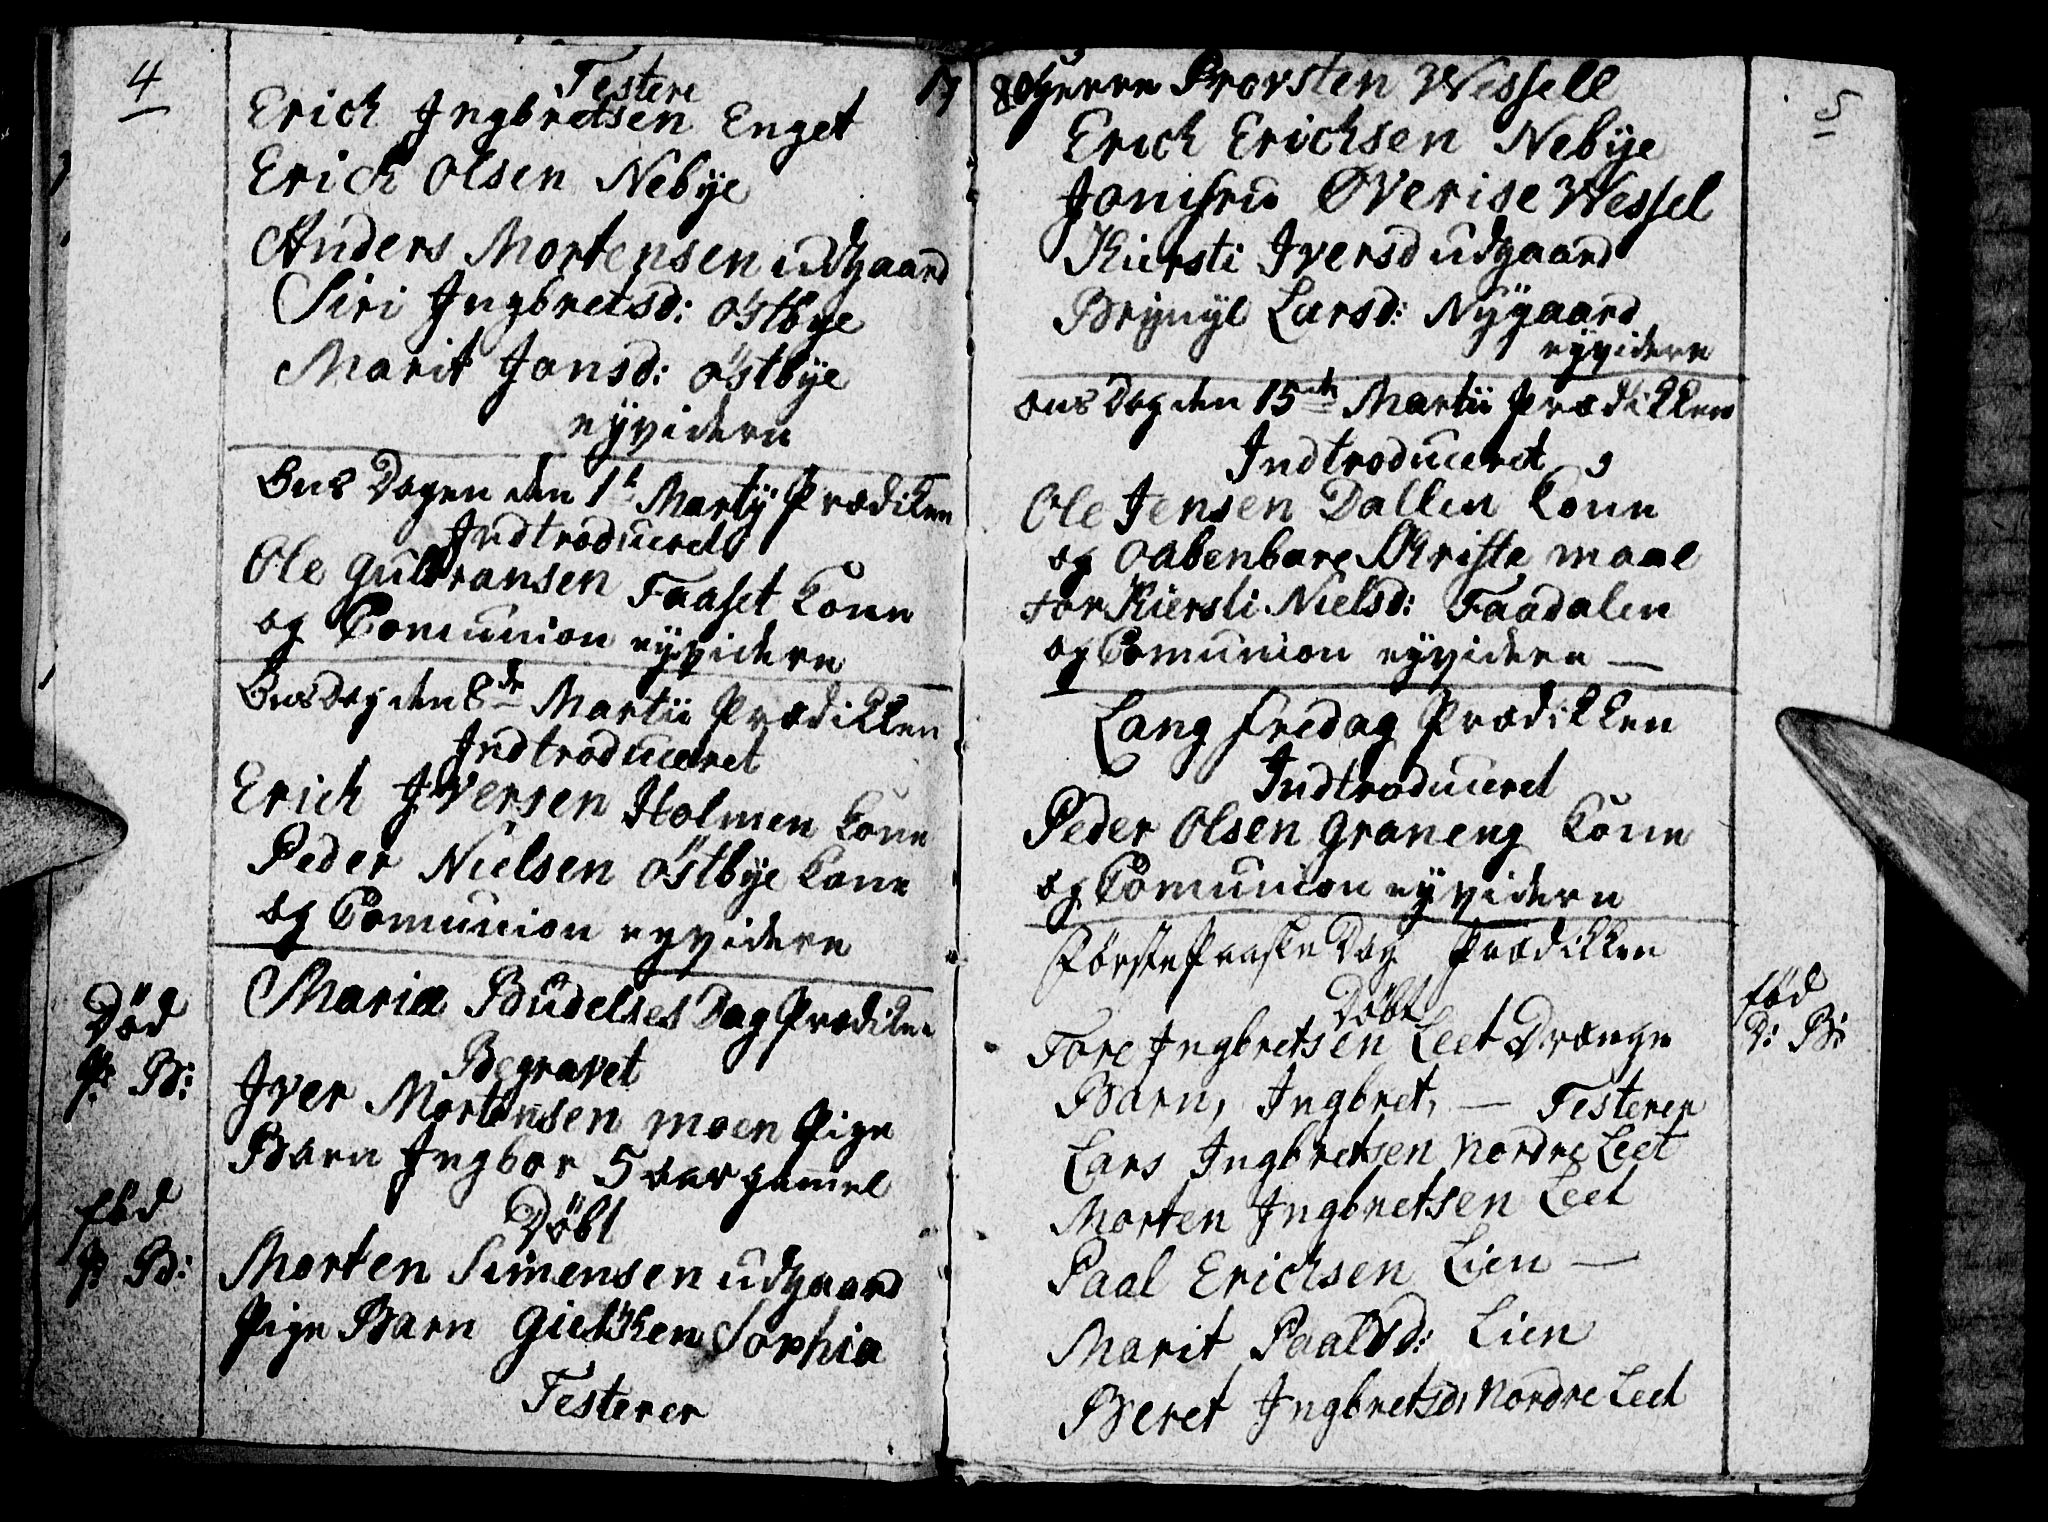 4
Testere
Erich Ingbretsen Enget
Erich Olsen Nebÿe
Anders Mortensen udgaard
Siri Ingbretsd: östbye
Marit Jonsd: östbÿe
eyvidere
Ons Dagen den 1t Martÿ Prædiken
Indtroduceret
Ole Gulbransen Faaset Kone
og Comunion eyvidere
Ons Dag den 8de Martii Prædikken
Indtroduceret
Erich Iversen Holmen Kone
Peder Nielsen östbÿe Kone
og Comunion eyvidere
Maria Budelses Dag Prædiken
Begravet
Død
P: B:
Iver Mortensen moen Pige
Barn Ingbor 5 aar gammel
Döbt
fød
P: B:
Morten Simensen udgaard
Pige Barn Sophia
Testerer
17
80
5
Herre Provsten Wessell
Erich Erichsen Nebÿe
Jomfru Overise Wessel
Kiersti Iversd udgaard
Brynyl Larsd: Nÿgaard
eyvidere
Ons Dag den 15de Martii Prædikken
Indtroduceret
Ole Jensen Dallen Kone
og Oabenbare Skrifte maal
for Kiersti Nielsd: Faadalen
og Comunion eyvidere —
Lang fredag Prædikken
Indtroduceret
Peder Olsen Graneng Kone
og Comunion eyvidere
Förste Paaske Dag Prædikken
Döbt
fød
D: B:
Tore Ingbretsen Leet Drænge
Barn, Ingbret, — Testerer
Lars Ingbretsen Nordre Leet
Morten Ingbretsen Leet
Paal Erichsen Lien —
Marit Paalsd: Lien
Beret Ingbretsd: Nordre Leet